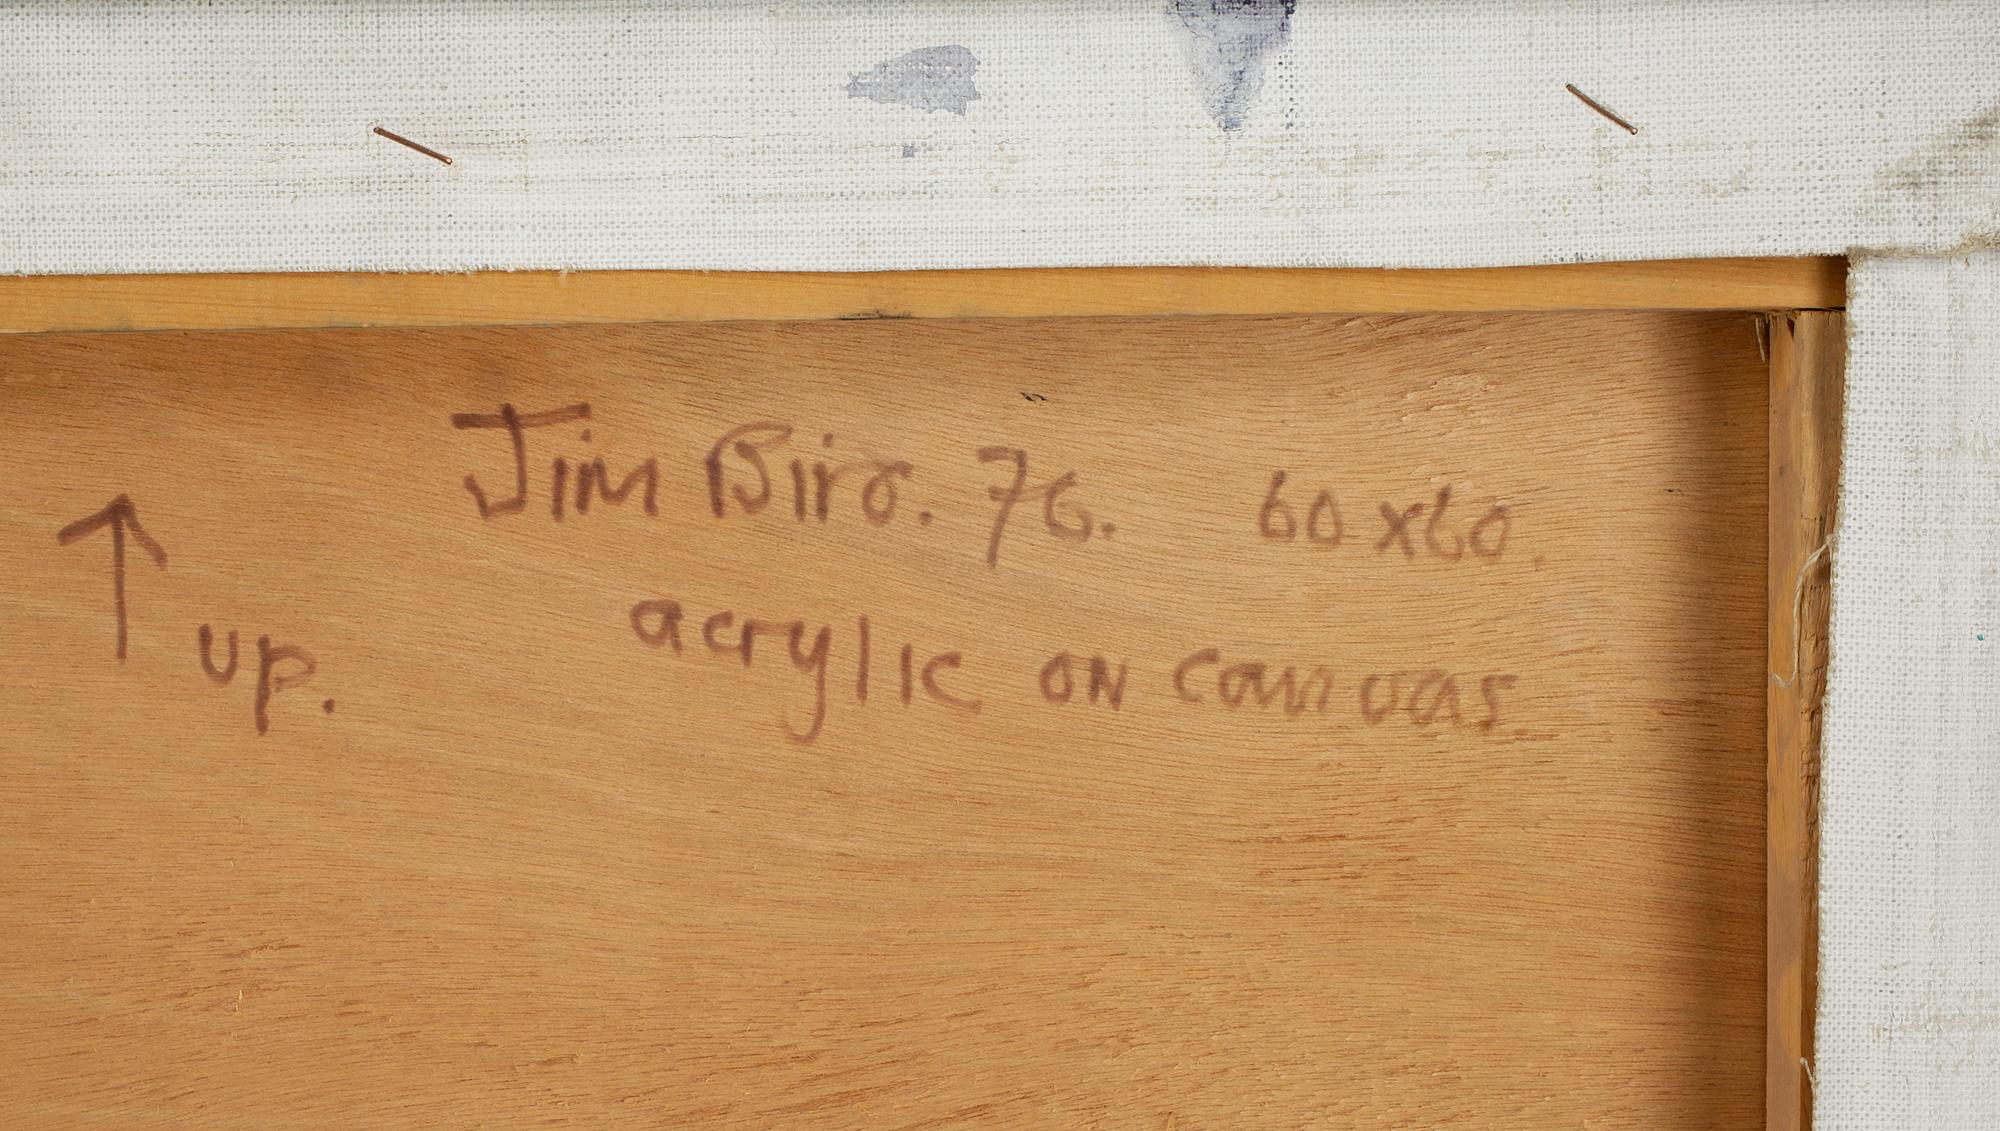 Jim Biro. 76. 60 x 60.
acrylic on canvas.
↑ up.